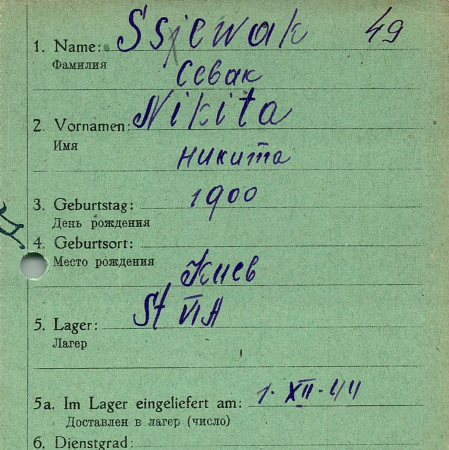 1. Name: Ssjewak 49
Фамилия
Севак
2. Vornamen: Nikita
Имя
никита
3. Geburtstag: 1900
День рождения
4. Geburtsort:
Место рождения
Киев
5. Lager: St VIA
Лагер
5a. Im Lager eingeliefert am: 1. XII. 44
Доставлен в лагер (число)
6. Dienstgrad: